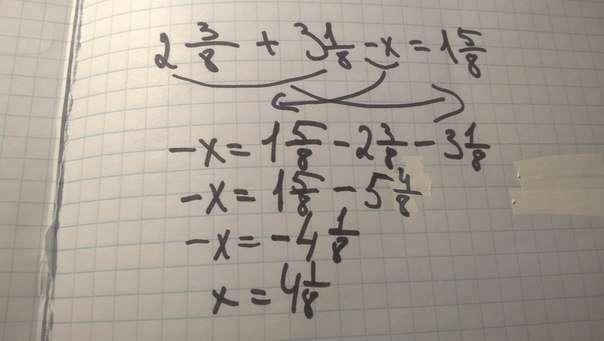 2 3/8 + 3 1/8 - x = 1 5/8
-x = 1 5/8 - 2 3/8 - 3 1/8
-x = 1 5/8 - 5 4/8
-x = -4 1/8
x = 4 1/8